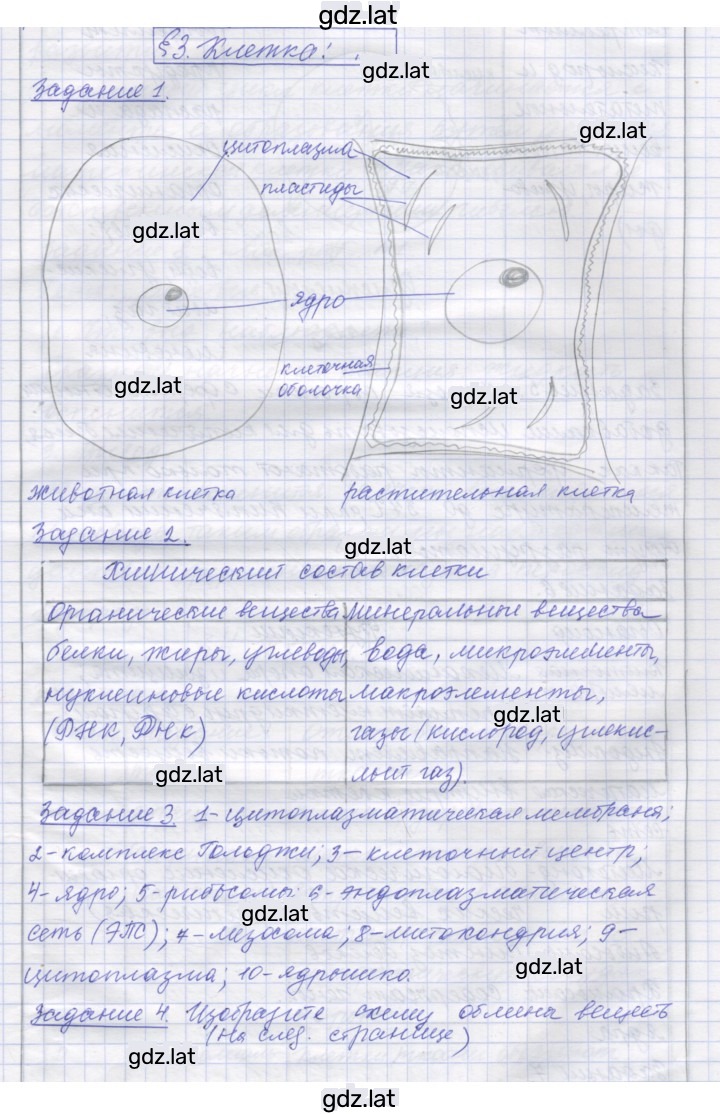 gdz.lat
§3. Клетка:
gdz.lat
Задание 1.
gdz.lat
цитоплазма
пластиды
gdz.lat
ядро
клеточная
оболочка
gdz.lat
gdz.lat
животная клетка
растительная клетка
Задание 2.
gdz.lat
Химический состав клетки
Органические вещества
минеральные вещества
белки, жиры, углеводы,
вода, микроэлементы,
нуклеиновые кислоты
макроэлементы,
gdz.lat
(РНК, ДНК)
газы (кислород, углекис-
gdz.lat
лый газ).
Задание 3. 1-цитоплазматическая мембрана;
2-комплекс Гольджи; 3-клеточный центр;
4-ядро; 5-рибосомы 6-эндоплазматическая
gdz.lat
сеть (ЭПС); 7-лизосома; 8-митохондрия; 9-
gdz.lat
цитоплазма; 10-ядрышко.
Задание 4. Изобразите схему обмена веществ
(на след. странице)
gdz.lat
gdz.lat